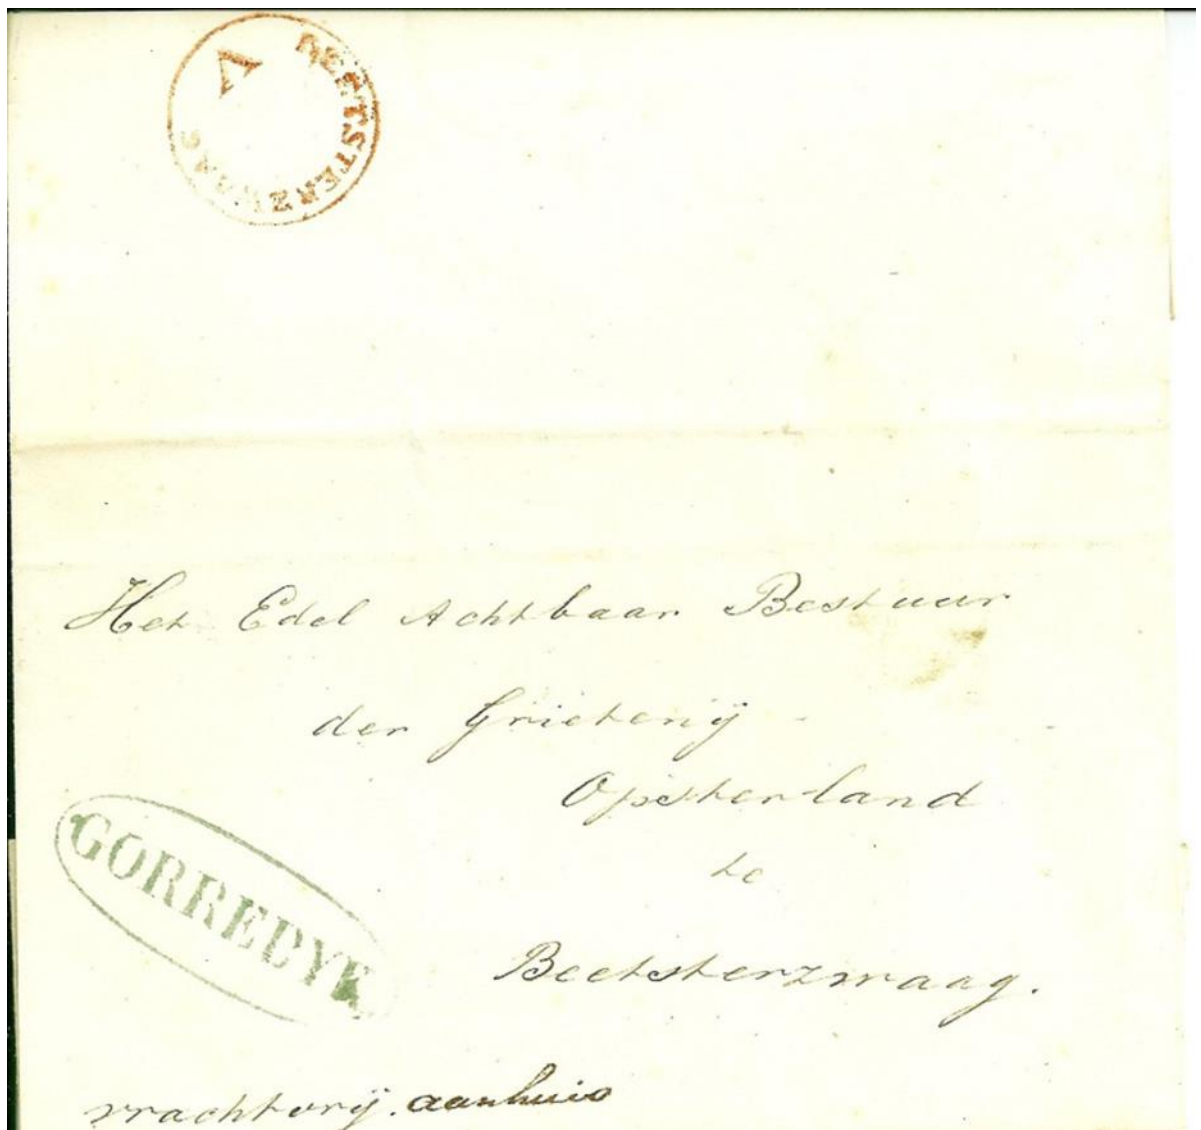 A BEETSTERZWAAG
Het Edel Achtbaar Bestuur
der Grietenij
Opsterland
te
Beetsterzwaag.
GORREDYK
vrachtvrij. aanhuis